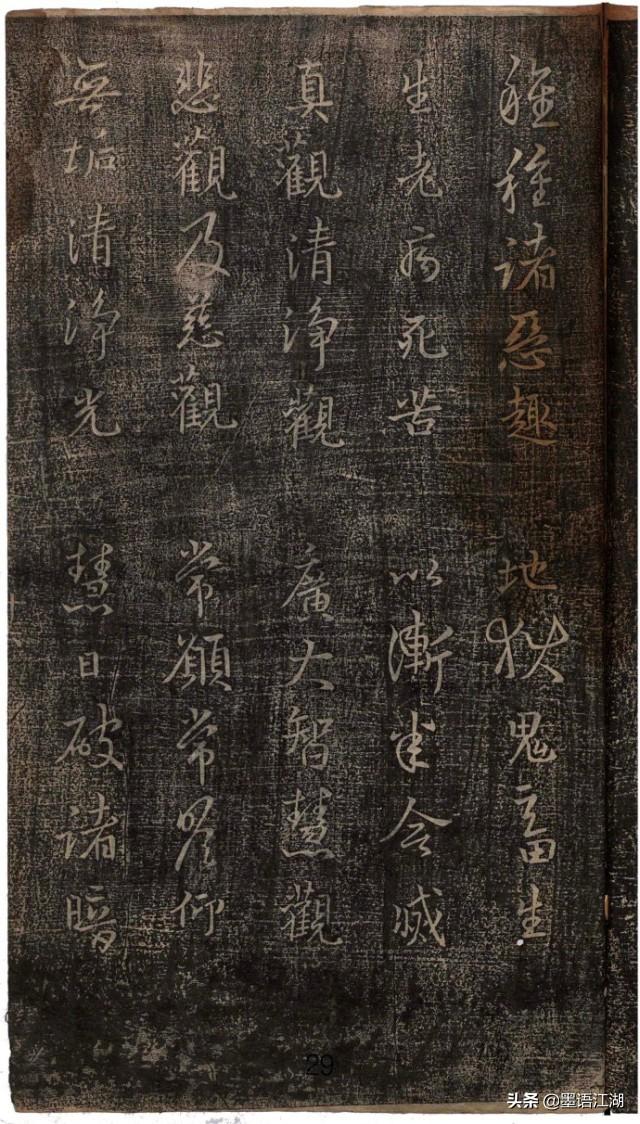 種種諸惡趣　地獄鬼畜生
生老病死苦　以漸悉令滅
真觀清淨觀　廣大智慧觀
悲觀及慈觀　常願常瞻仰
無垢清淨光　慧日破諸暗
29
头条 @墨语江湖